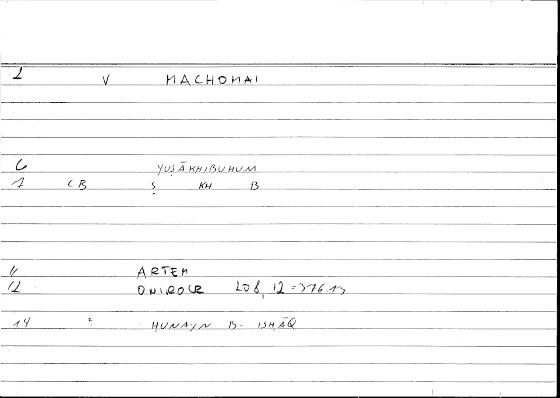 1 V MACHOMAI
6 YUṢĀKHIBUHUM
7 CB Ṣ KH B
11 ARTEM
12 ONIROCR 208, 12 = 376.13
14 ² ḤUNAYN B. ISḤĀQ